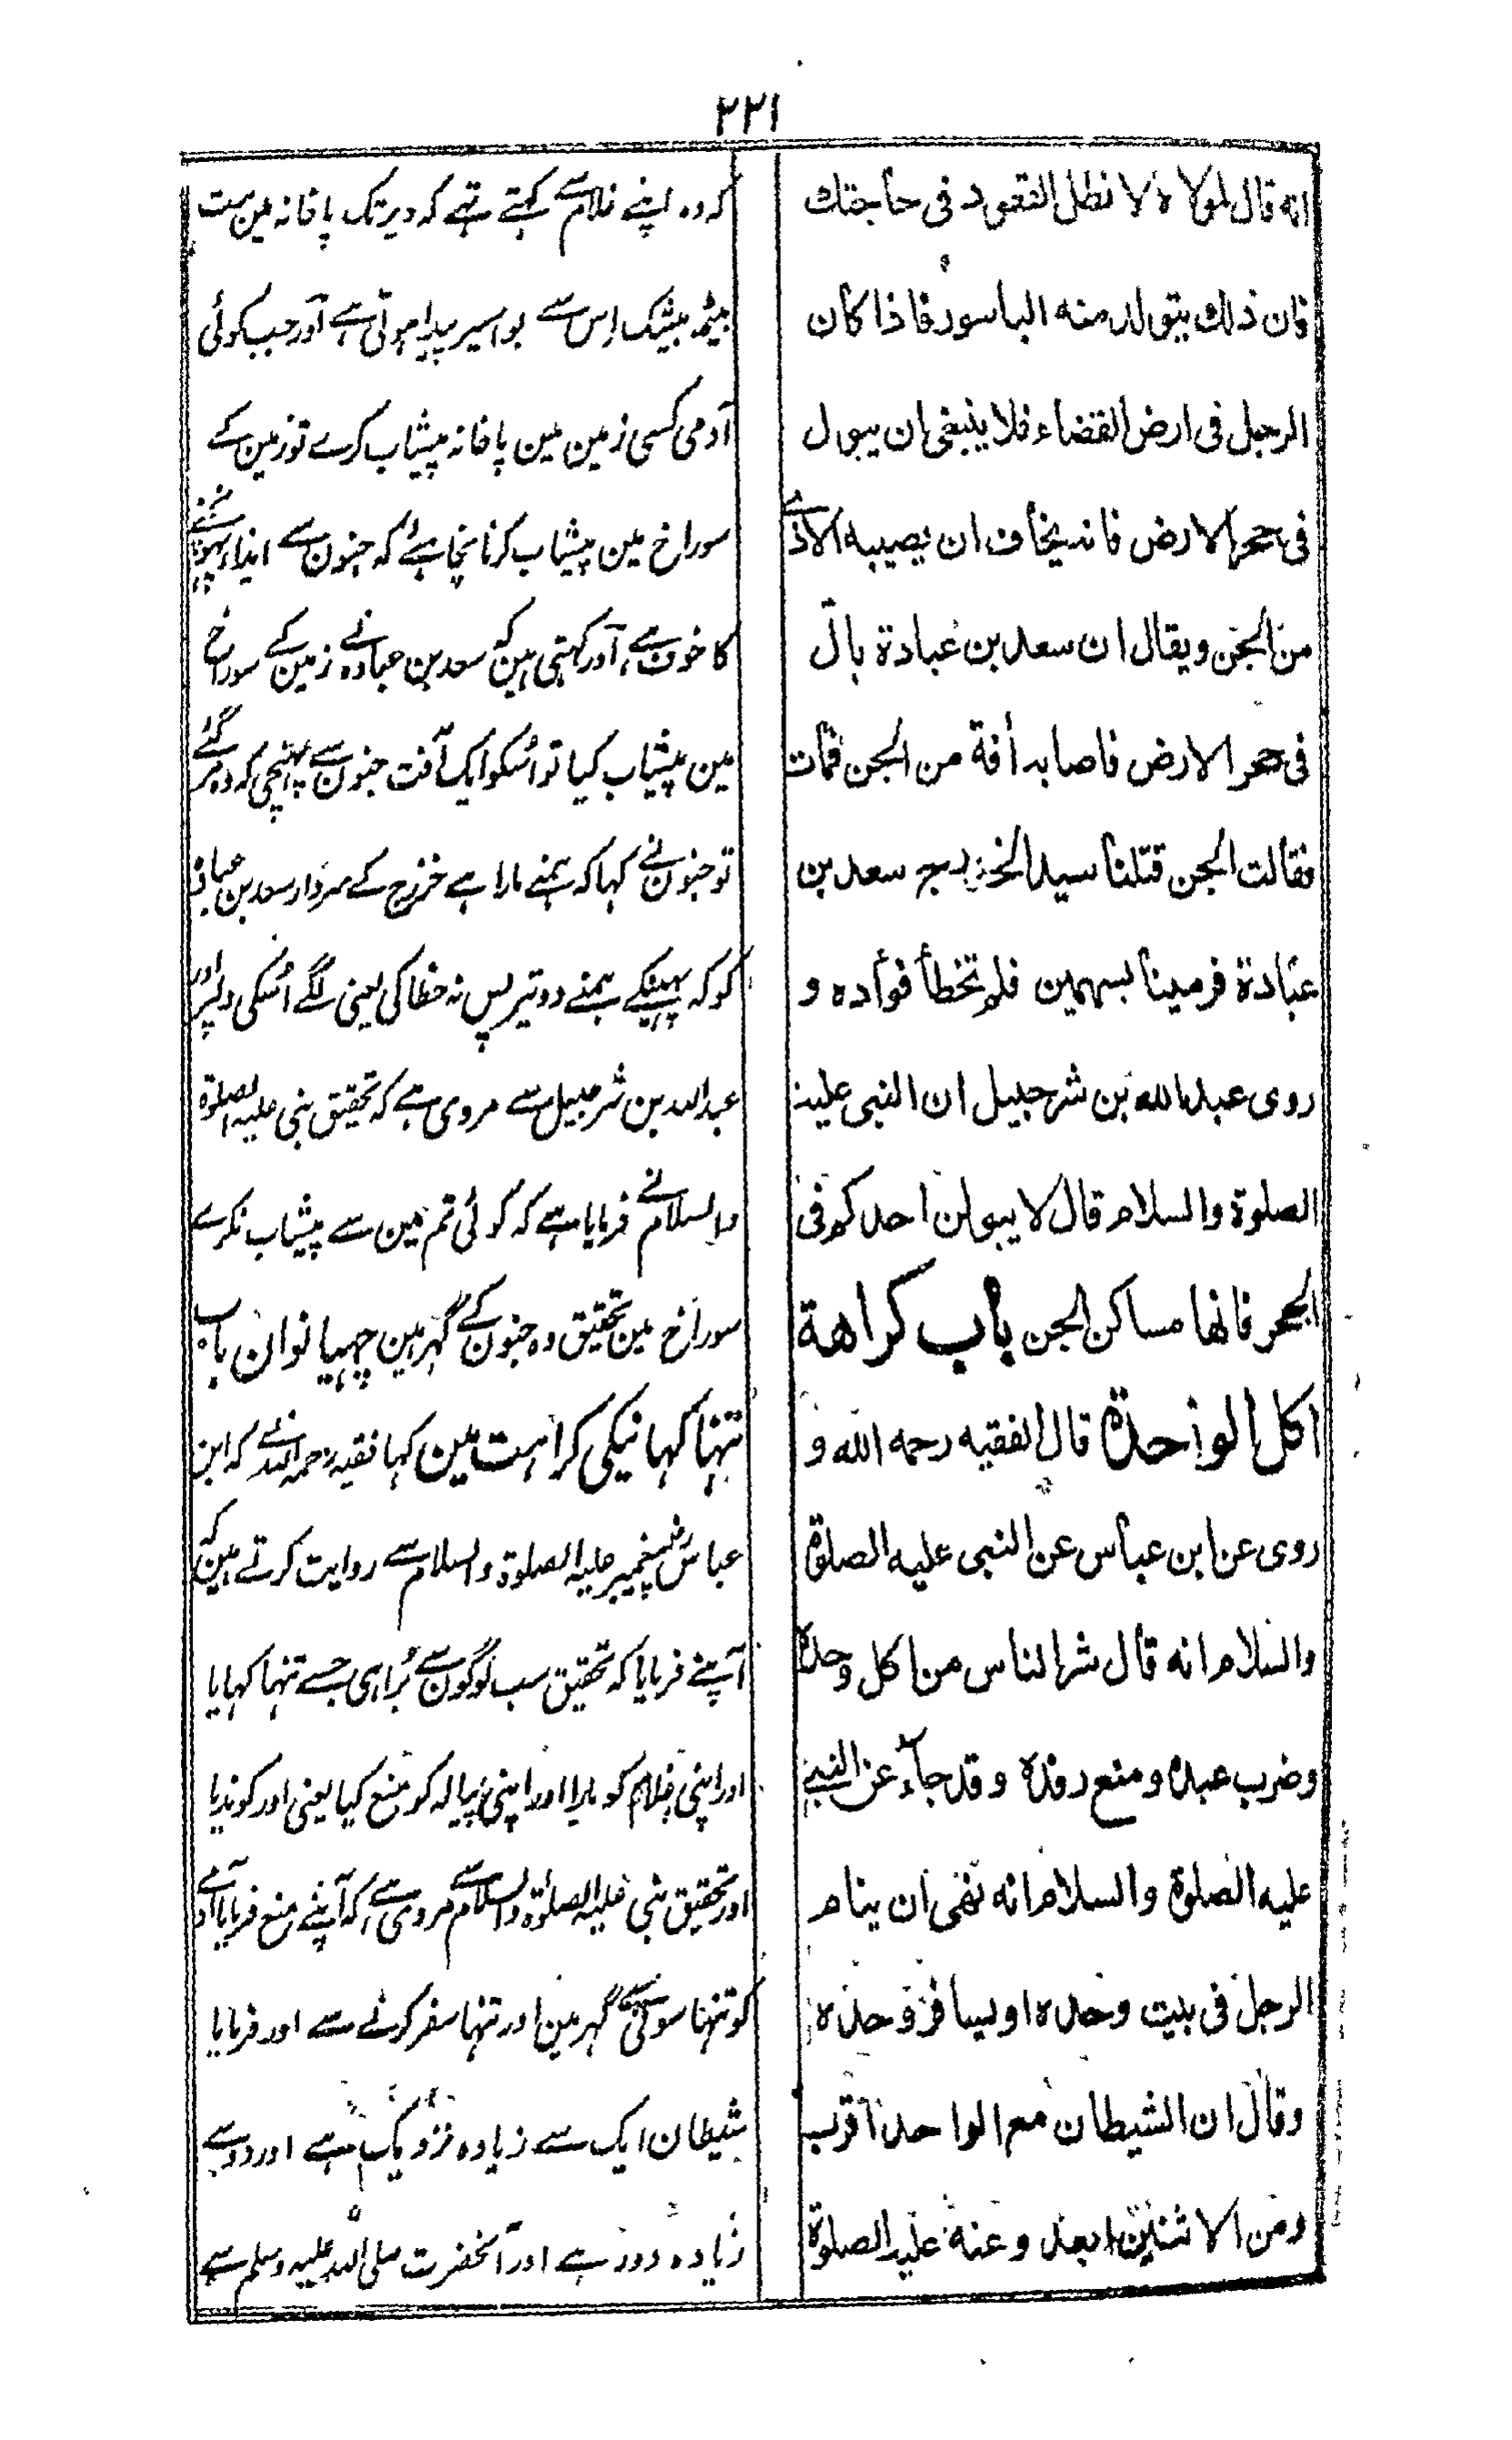 ۲۲۱
انه قال لمولاه لا تطل القعود فی حاجتك
فان ذلك يتولد منه الباسور فاذا كان
الرجل فی ارض القضاء فلا ينبغی ان يبول
فی حجر الارض فانه يخاف ان يصيبه الاذے
من الجن ويقال ان سعد بن عبادة بال
فی حجر الارض فاصابه أفة من الجن فمات
فقالت الجن قتلنا سيد الخزرج سعد بن
عبادة فرمينا بسهمين فلم تخطأ فوأده و
روی عبد الله بن شرحبيل ان النبی عليه
الصلوة والسلام قال لا يبولن احدكم فی
الجحر فانها مساكن الجن باب كراهة
اكل الواحدة قال الفقيه رحمه الله و
روی عن ابن عباس عن النبی عليه الصلوة
والسلام انه قال شر الناس من اكل وحده
وضرب عبده ومنع رفده وقد جاء عن النبے
عليه الصلوة والسلام انه نهی ان ينام
الرجل فی بيت وحده او يسافر وحده
وقال ان الشيطان مع الواحد اقرب
ومن الاثنين ابعد وعنه عليه الصلوة
کہ وہ اپنے غلام سے کہتے تہے کہ دیر تک پاخانہ مین مت
بیٹھہ بیشک اِس سے بواسیر پیدا ہوتی ہے آور جب کوئی
آدمی کسی زمین مین پاخانہ پیشاب کرے تو زمین کے
سوراخ مین پیشاب کرنا نچاہئے کہ جنون سے ایذا پہونچنے
کا خوف ہے، آور کہتی ہین کہ سعد بن عبادہ نے زمین کے سوراخ
مین پیشاب کیا تو اُسکو ایک آفت جنون سے پہنچی کہ وہ مر گئے
تو جنون نے کہا کہ ہمنے مارا ہے خزرج کے سردار سعد بن عبادہ
کو کہ پہینکے ہمنے دو تیر پس نہ خطا کی یعنی لگے اُسکی دلپر اور
عبد اللہ بن شرحبیل سے مروی ہے کہ تحقیق نبی علیہ الصلوة
والسلام نے فرمایا ہے کہ کوئی تم مین سے پیشاب نکرے
سوراخ مین تحقیق وہ جنون کے گہر ہین چہیانوان باب
تنہا کہانیکی کراہت مین کہا فقیہ رحمہ اللہ نے کہ ابن
عباس رض پیغمبر علیہ الصلوة والسلام سے روایت کرتے ہین کہ
آپنے فرمایا کہ تحقیق سب لوگون سے بُرا ہی جسے تنہا کہایا
اور اپنی غلام کو مارا اور اپنی پیالہ کو منع کیا یعنی اور کو ندیا
اور تحقیق نبی علیہ الصلوٰة والسلام سے مروی ہے کہ آپنے منع فرمایا آدمے
کو تنہا سونے سے گہر مین اور تنہا سفر کرنے سے اور فرمایا
شیطان ایک سے زیادہ نزدیک ہے اور دو سے
زیادہ دور ہے اور آنحضرت صلی اللہ علیہ وسلم سے